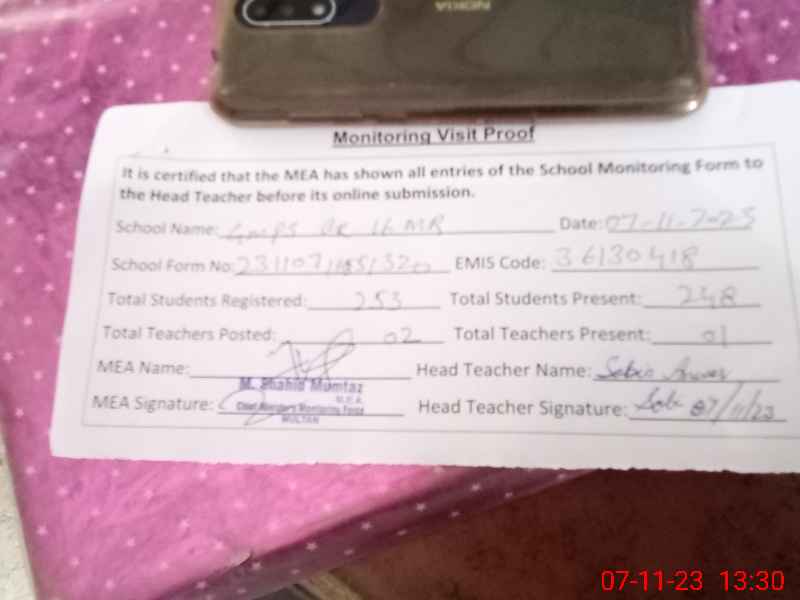 NOKIA
Monitoring Visit Proof
It is certified that the MEA has shown all entries of the School Monitoring Form to
the Head Teacher before its online submission.
School Name: GMPS 16 MR Date: 07-11-2023
School Form No: EMIS Code: 36130418
Total Students Registered: 253 Total Students Present: 248
Total Teachers Posted: 02 Total Teachers Present: 01
MEA Name: Head Teacher Name:
M. Shahid Mumtaz
M.E.A
MEA Signature: Chief Minister's Monitoring Force Head Teacher Signature: 07/11/23
MULTAN
07-11-23 13:30